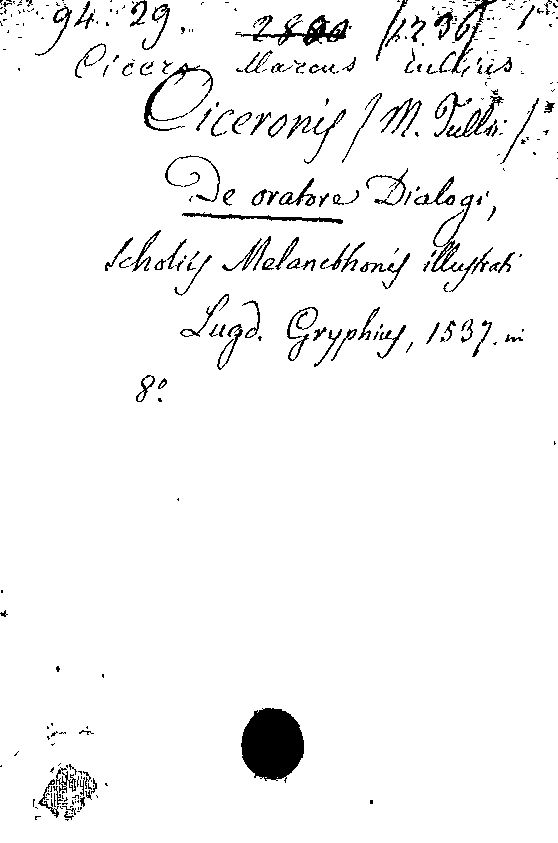 94. 29.
Cicero Marcus Tullius
Ciceronis / M. Tullii /
De oratore Dialogi,
scholiis Melanchthonis illustrati
Lugd. Gryphius, 1537. in
8°